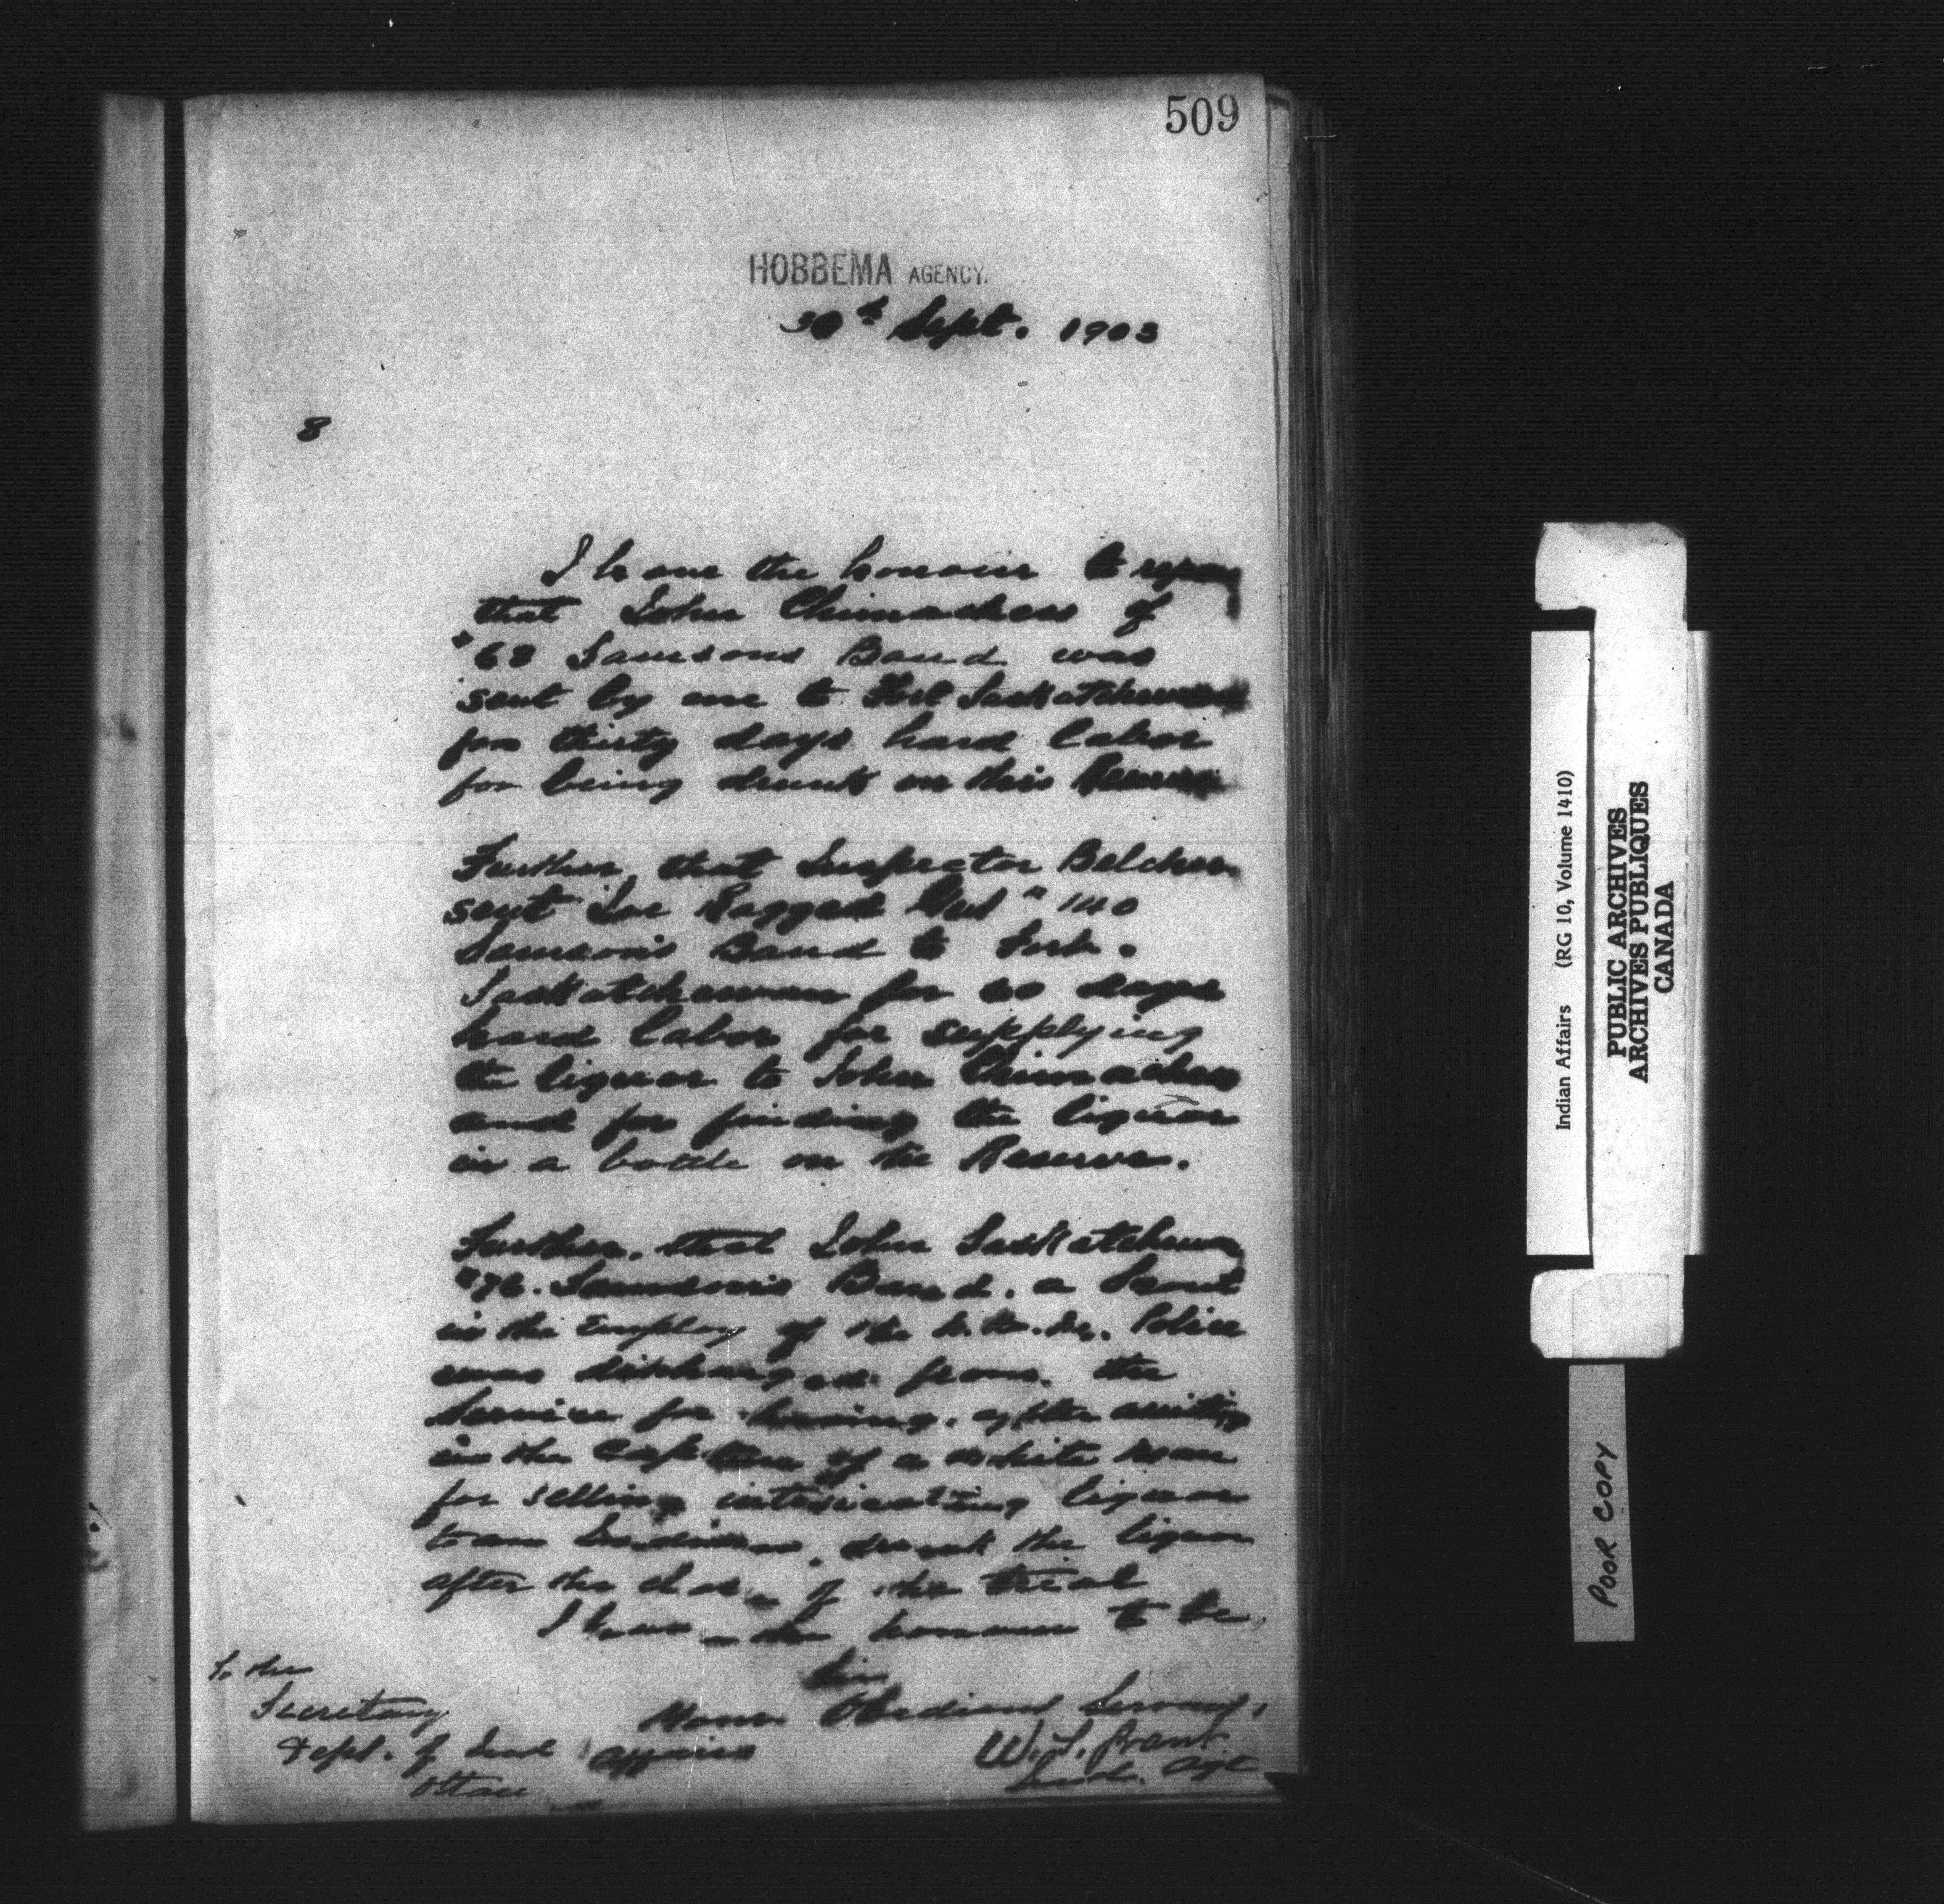 509
HOBBEMA AGENCY.
30th Sept. 1903
8
I have the honour to report
that John of
"68 Samsons Band was
sent by me to Fort Saskatchewan
for thirty days hard labor
for being drunk on this Reserve
Further, that Inspector Belcher
sent Joe Ragged " 140
Samson's Band to Fort.
Saskatchewan for 60 days
hard labor for supplying
the liquor to John
and for finding the liquor
in a bottle on the Reserve.
Further, that John Saskatchewan
"76. Samson's Band, a Scout
in the Employ of the N.W.M. Police
was discharged from the
Service for having, after assisting
in the Capture of a white man
for selling intoxicating liquor
to an Indian, drunk the liquor
after the close of the trial
I have the honour to be
Sir
Your Obedient Servant,
W. S. Grant
Ind. Agt
To the
Secretary
Dept. of Ind Affairs
Ottawa
Indian Affairs (RG 10, Volume 1410)
PUBLIC ARCHIVES
ARCHIVES PUBLIQUES
CANADA
POOR COPY